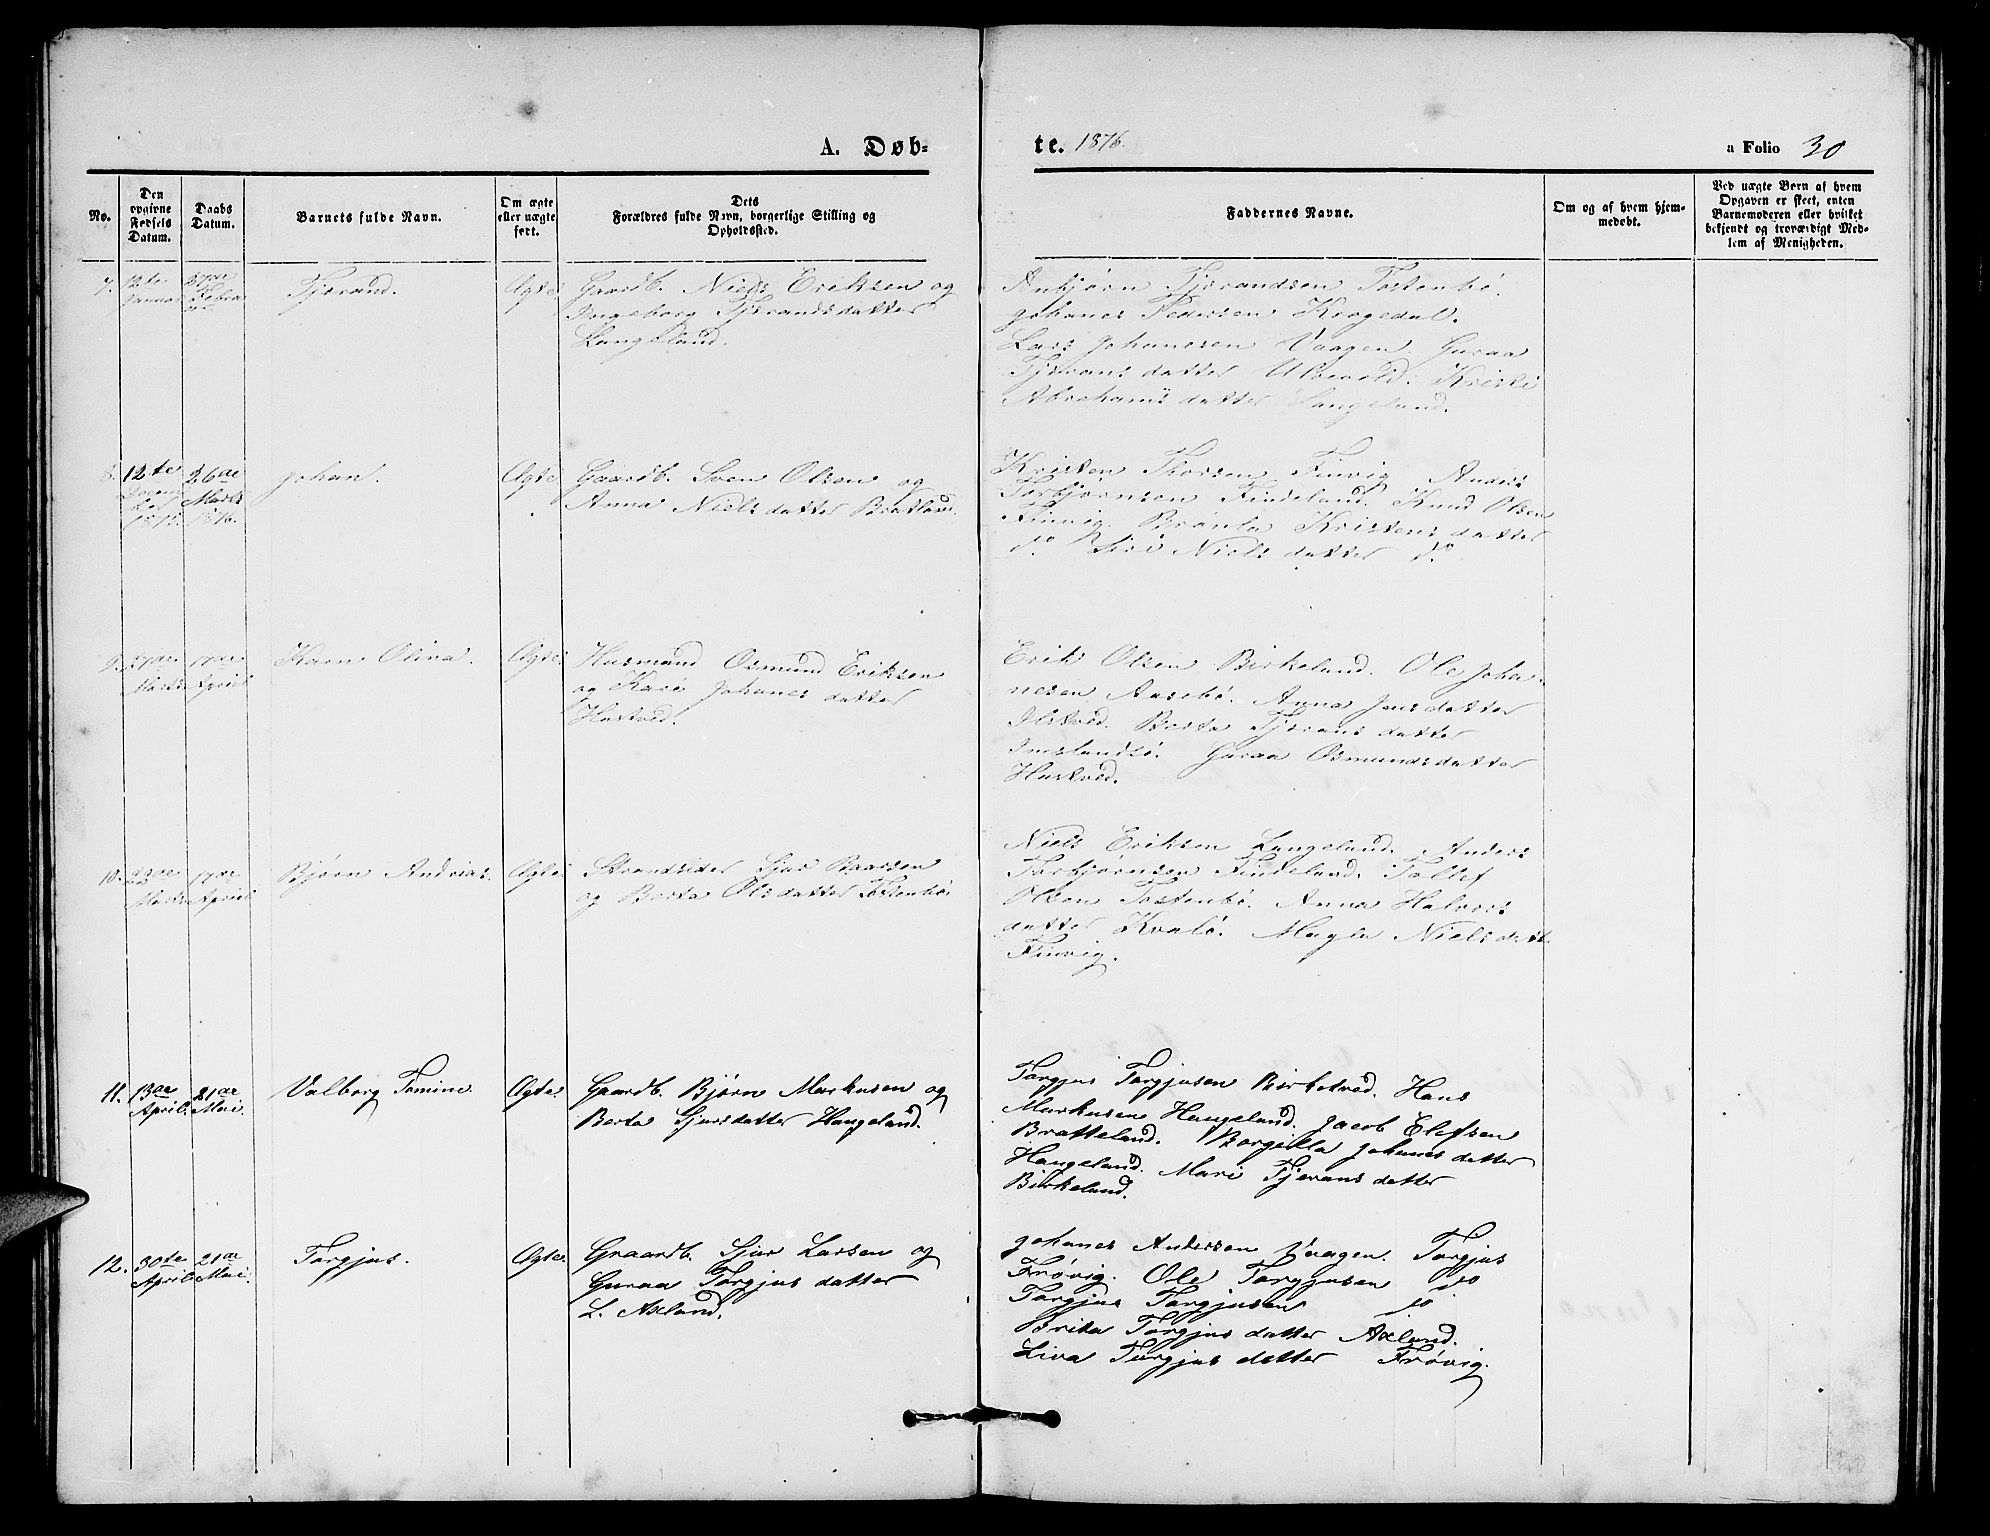 A. Døb=
te. 1876.
a Folio 30
No.
Den opgivne Fødsels Datum.
Daabs Datum.
Barnets fulde Navn.
Om ægte eller uægte født.
Dets Forældres fulde Navn, borgerlige Stilling og Opholdssted.
Faddernes Navne.
Om og af hvem hjemmedøbt.
Ved uægte Børn af hvem Opgaven er skeet, enten Barnemoderen eller hvilket bekjendt og troværdigt Medlem af Menigheden.
7. 12te Januar
Tjerand.
Ægte
Gaardb. Niels Eriksen og
Ingeborg Tjerandsdatter
Langeland.
Anbjørn Tjerandsen Tostenbø.
Johanes Pedersen Krogedal.
Lars Johanesen Vaagen. Guraa
Tjerans datter Ulvevold. Kristi
Abrahams datter Langeland.
8. 12te 1875.
26de Marts 1876.
Johan.
Ægte
Gaardb. Sven Olsen og
Anna Niels datter Bratland.
Kristen Thorsen Finvig Anders
Torbjørnsen Findeland. Knud Olsen
Finnvig. Brønla Kristens datter
do Siri Niels datter do
9. 27de Marts
17de April
Karn Olina.
Ægte.
Husmand Osmund Eriksen
og Kari Johanes datter
Hustved.
Erik Olsen Birkeland. Ole Joha-
nesen Aasebø. Anna Jens datter
Ilstved. Berta Tjerans datter
Imslandsø. Guraa Osmundsdatter
Hustved.
10. Marts
17de April
Bjørn Andrias.
Ægte
Strandsider Sjur Baarsen
og Berta Ols datter Tostenbø.
Niels Eriksen Langeland. Anders
Torbjørnsen Findeland. Tollef
Olsen Tostenbø. Anna Halvors
datter Kvalø. Magla Niels datt.
Finvig.
11. 13de April.
21de Mai.
Valborg Tomine.
Ægte.
Gaardb. Bjørn Markusen og
Berta Sjursdatter Haugeland.
Torgjus Torgjusen Birketved. Hans
Markusen Haugeland. Jacob Elefsen
Bratteland. Borgilla Johanes datter
Haugeland. Mari Tjerans datter
Birkeland.
12. 30te April
21de Mai.
Torgjus.
Ægte.
Graardb. Sjur Larsen og
Guraa Torgjus datter
L. Axland.
Johanes Andersen Vaagen. Torgjus
Frøvig. Ole Torgjusen do
Torgjus Torgjusen do
Brita Torgjus datter Axland.
Liva Torgjus datter Frøvig.